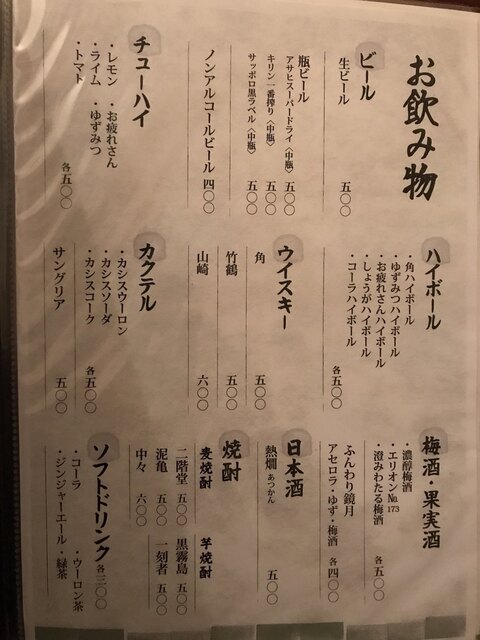 お飲み物
ビール
生ビール 五〇〇
瓶ビール
アサヒスーパードライ〈中瓶〉 五〇〇
キリン一番搾り〈中瓶〉 五〇〇
サッポロ黒ラベル〈中瓶〉 五〇〇
ノンアルコールビール 四〇〇
チューハイ
・レモン ・お疲れさん
・ライム ・ゆずみつ
・トマト
各五〇〇
ハイボール
・角ハイボール
・ゆずみつハイボール
・お疲れさんハイボール
・しょうがハイボール
・コーラハイボール
各五〇〇
ウイスキー
角 五〇〇
竹鶴 五〇〇
山崎 六〇〇
カクテル
・カシスウーロン
・カシスソーダ
・カシスコーク
各五〇〇
サングリア 五〇〇
梅酒・果実酒
・濃醇梅酒
・エリオン№173
・澄みわたる梅酒
各五〇〇
ふんわり鏡月
アセロラ・ゆず・梅酒 各四〇〇
日本酒
熱燗 あつかん 五〇〇
焼酎
麦焼酎
二階堂 五〇〇
泥亀 五〇〇
中々 六〇〇
芋焼酎
黒霧島 五〇〇
一刻者 五〇〇
ソフトドリンク 各三〇〇
・コーラ ・ウーロン茶
・ジンジャーエール ・緑茶